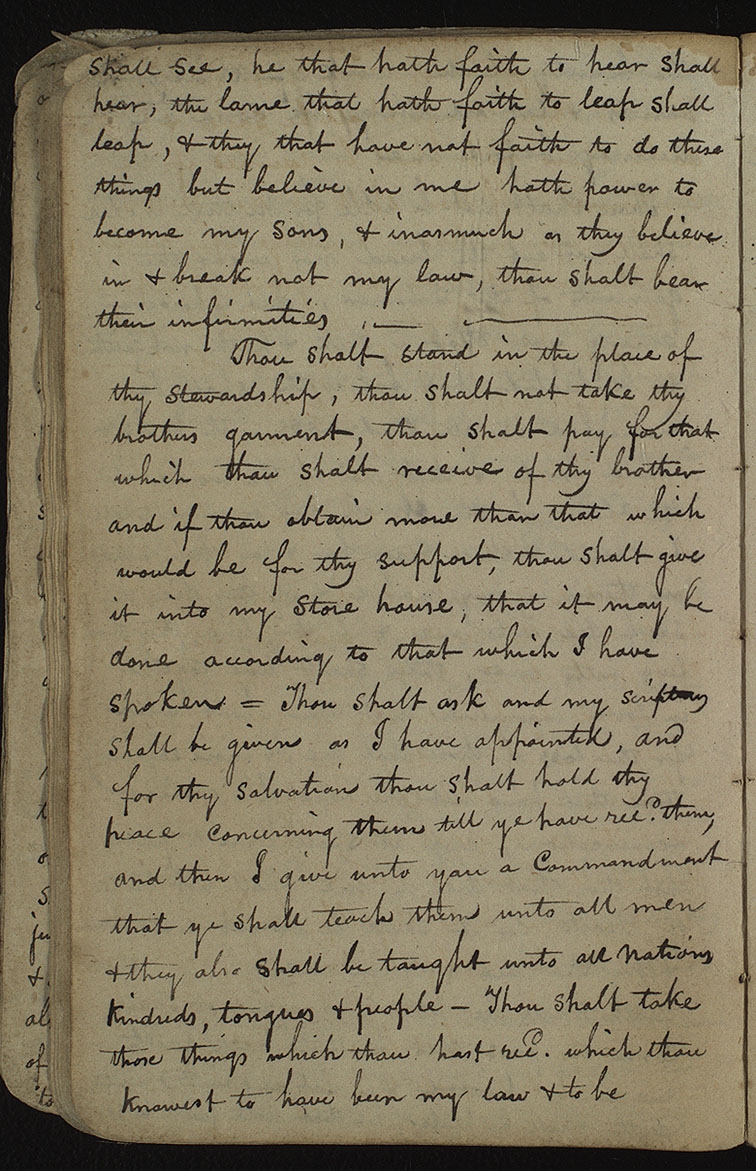 shall see, he that hath faith to hear shall
hear, the lame that hath faith to leap shall
leap, & they that have not faith to do these
things but believe in me hath power to
become my Sons, & inasmuch as they believe
in & break not my law, thou shalt bear
their infirmities, —
Thou shalt stand in the place of
thy stewardship, thou shalt not take thy
brothers garment, thou shalt pay for that
which thou shalt receive of thy brother
and if thou obtain more than that which
would be for thy support, thou shalt give
it into my Store house, that it may be
done according to that which I have
spoken = Thou shalt ask and my scriptures
shall be given as I have appointed, and
for thy Salvation thou shalt hold thy
peace concerning them till ye have recd. them,
and then I give unto you a Commandment
that ye shall teach them unto all men
& they also shall be taught unto all Nations
Kindreds, tongues & people — Thou shalt take
those things which thou hast recd. which thou
knowest to have been my law & to be